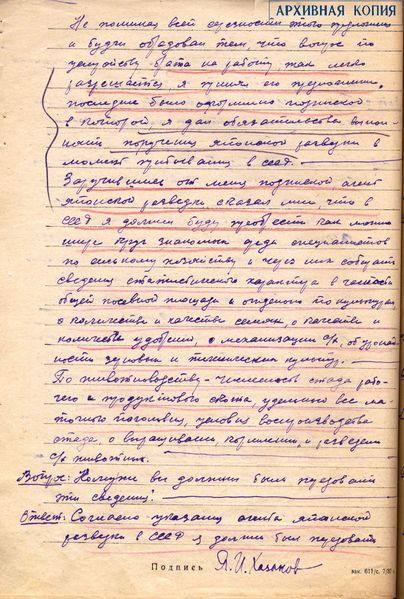 АРХИВНАЯ КОПИЯ
Не понимая всей серьезности этого предложения
и будучи обрадован тем, что вопрос по
устройству брата на работу так легко
разрешается, я принял его предложение,
последнее было оформлено подпиской
в которой, я дал обязательства выпол-
нять поручения японской разведки в
момент пребывания в СССР.
Заручившись от меня подпиской агент
японской разведки сказал мне, что в
СССР я должен буду приобрести как можно
шире круг знакомых среди специалистов
по сельскому хозяйству и через них собирать
сведения статистического характера в частности
общей посевной площади и отдельно по культурам
о количестве и качестве семян, о качестве и
количестве удобрений, о механизации с/х, об урожай-
ности зерновых и технических культур.
По животноводству - численность стада рабо-
чего и продуктового скота, удельный вес ма-
точного поголовья, условия воспроизводства
стада, о выращивании, кормлении, и разведении
с/х животных.
Вопрос: Кому вы должны были передавать
эти сведения?
Ответ: Согласно указания агента японской
разведки в СССР я должен был передавать
Подпись Я.И. Казаков
зак. 611/с. 7/